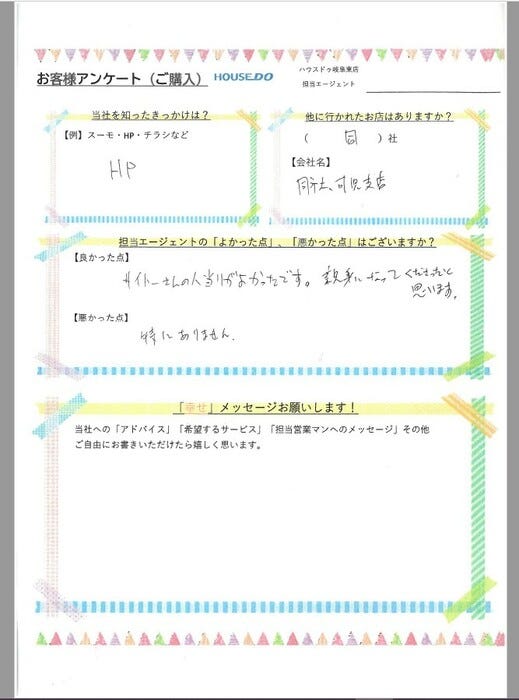 お客様アンケート（ご購入） HOUSEDO
ハウスドゥ岐阜東店
担当エージェント
当社を知ったきっかけは？
【例】スーモ・HP・チラシなど
HP
他に行かれたお店はありますか？
（ 同 ）社
【会社名】
同社、可児支店
担当エージェントの「よかった点」、「悪かった点」はございますか？
【良かった点】
サイトーさんの人当りがよかったです。親身になってくださったと
思います。
【悪かった点】
特にありません。
「幸せ」メッセージお願いします！
当社への「アドバイス」「希望するサービス」「担当営業マンへのメッセージ」その他
ご自由にお書きいただけたら嬉しく思います。